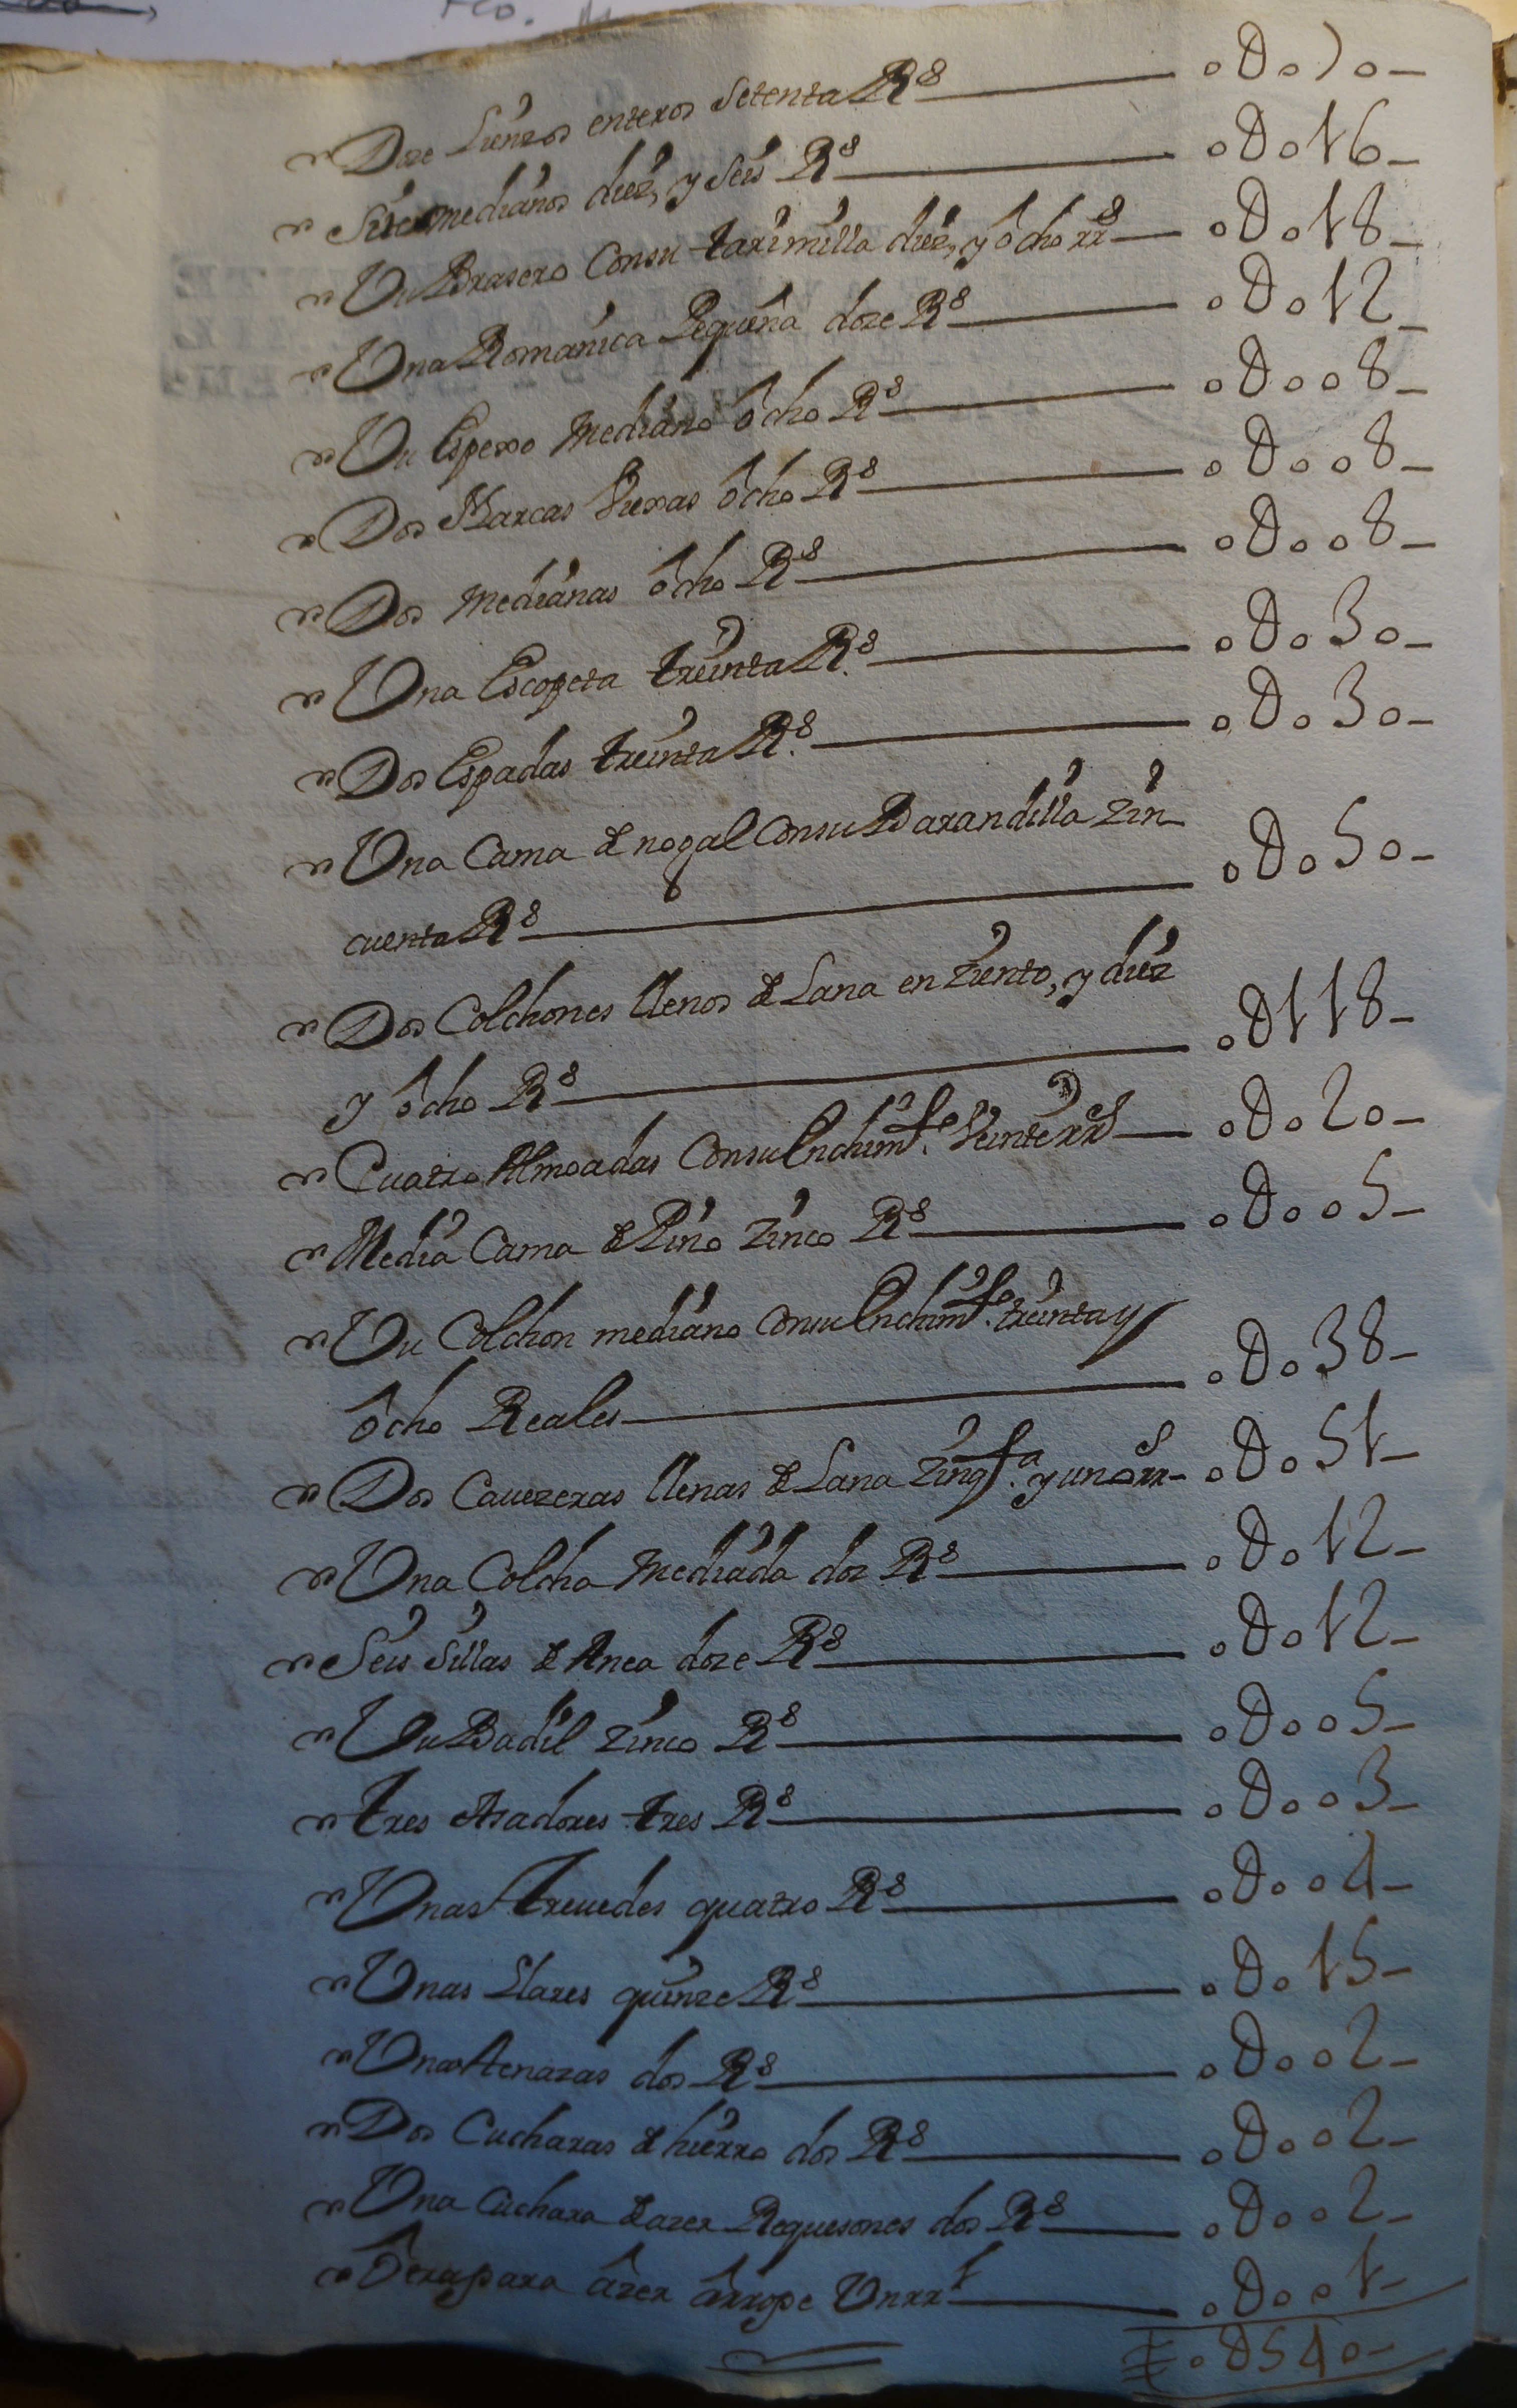 Doze Lienzos enteros Setenta Rs — oUo70—
Siete medianos diez, y Seis Rs — oUo16—
Un Brasero Consu tarimilla diez, y ôcho rrs — oUo18—
Una Romanica Pequeña doze Rs — oUo12—
Un Espexo Mediano ôcho Rs — oUoo8—
Dos Harcas Viexas ôcho Rs — oUoo8—
Dos Medianas ôcho Rs — oUoo8—
Una Escopeta treinta Rs. — oUo30—
Dos Espadas treinta Rs. — oUo30—
Una Cama de nogal Consu Barandilla Zin-
cuenta Rs — oUo50—
Dos Colchones llenos de Lana en Ziento, y diez
y ôcho Rs — oU118—
Cuatro Almoadas Consu Enchimto. Veinte rrs — oUo20—
Media Cama de Pino Zinco Rs — oUoo5—
Un Colchon mediano Consu Enchimto. treinta y
ôcho Reales — oUo38—
Dos Cauezeras llenas de Lana Zinqta. y un rrs — oUo51—
Una Colcha Mediada doz Rs — oUo12—
Seis Sillas de Anea doze Rs — oUo12—
Un Badil Zinco Rs — oUoo5—
Tres Asadores tres Rs — oUoo3—
Unas Treuedes quatro Rs — oUoo4—
Unas Llares quinze Rs — oUo15—
Unas tenazas dos Rs — oUoo2—
Dos Cucharas de hierro dos Rs — oUoo2—
Una Cuchara de azer Requesones dos Rs — oUoo2—
Ôtra para âzer ârrope Un rrl — oUoo1—
oU540—